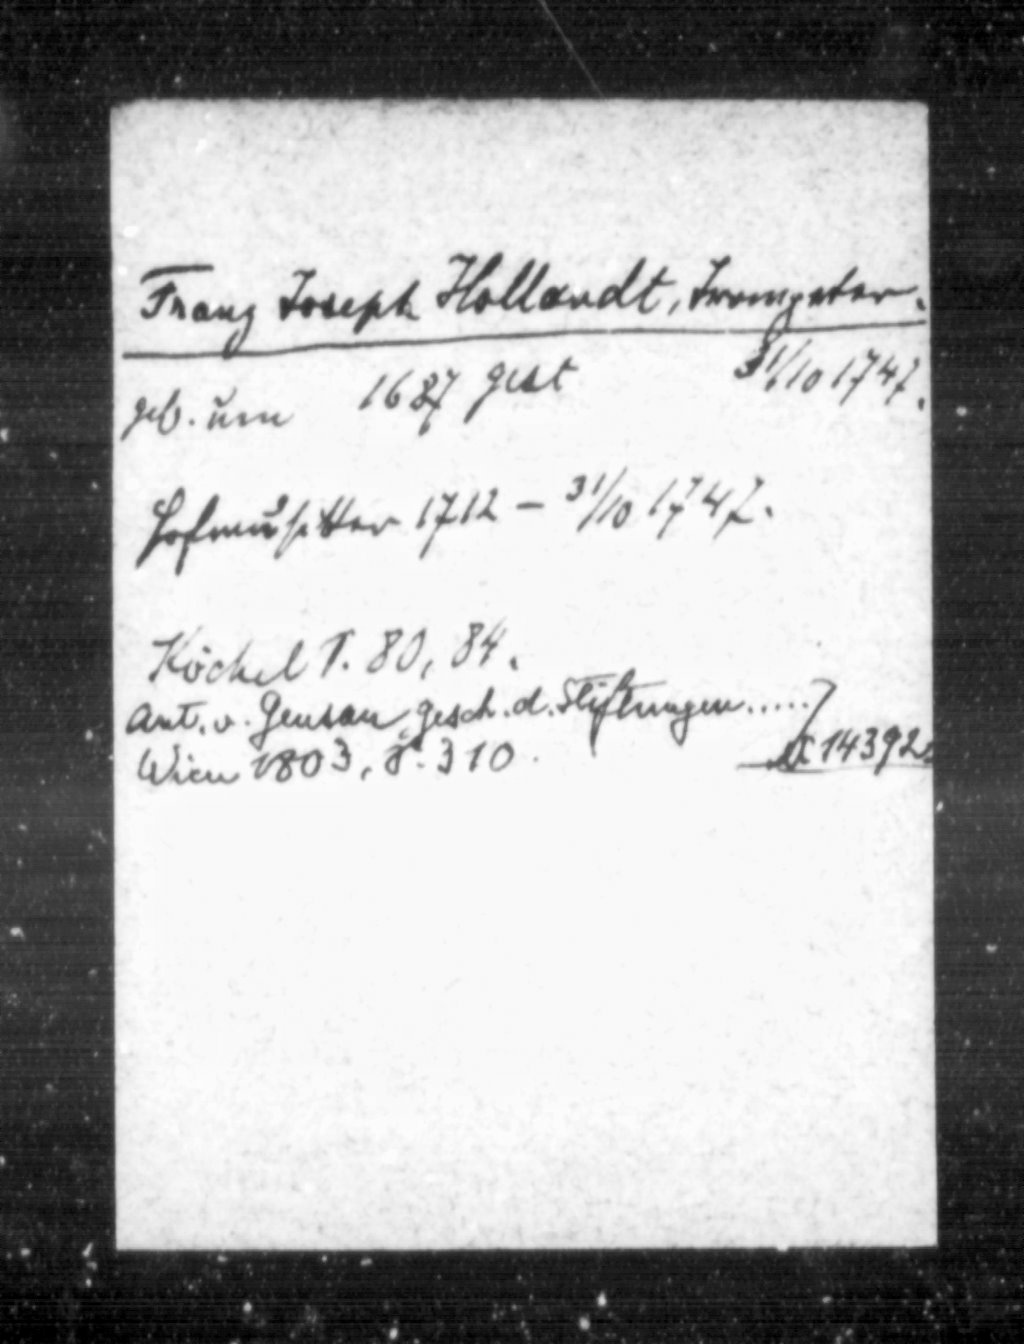 Franz Joseph Hollandt, Trompeter.
geb. um 1687 gest 31/10 1747.
Hofmusiker 1712 – 31/10 1747.
Köchel S. 80, 84.
Ant. v. Geusau, Gesch. d. Stiftungen.....
Wien 1803, S. 310.
14392